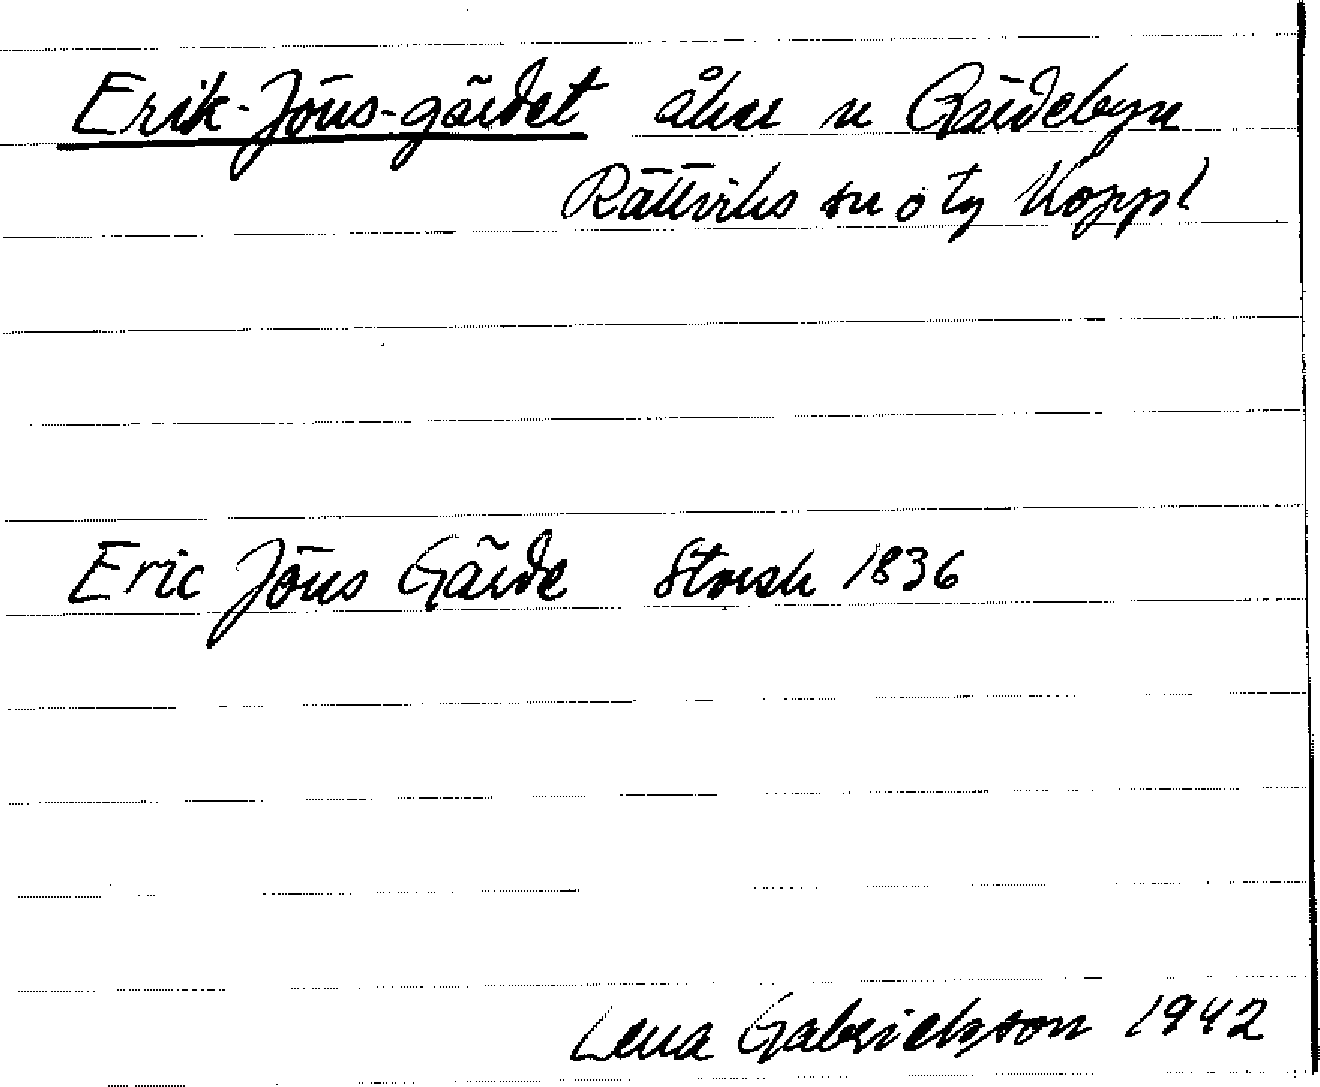 Erik-Jöns-gärdet åker n Gärdebyn
Rättviks sn o tg Koppl
Eric Jöns Gärde Storsk 1836
Lena Gabrielsson 1942